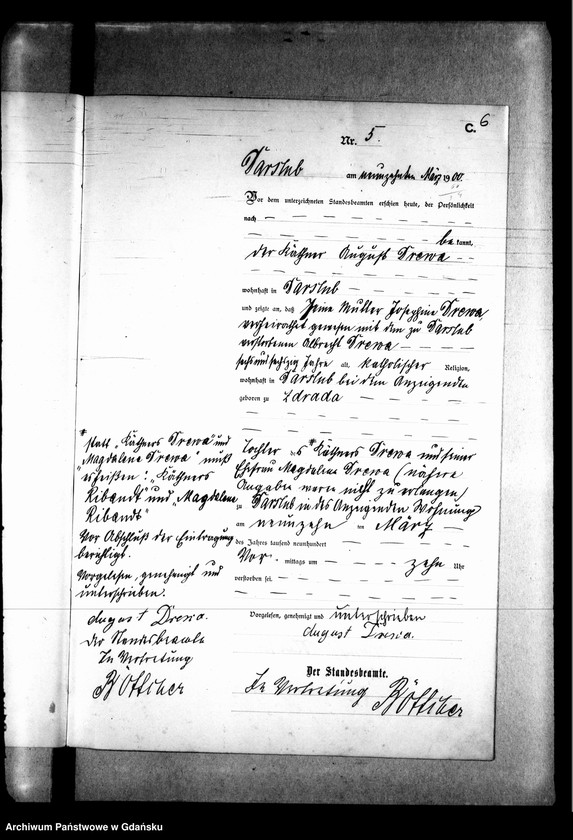 C. 6
Nr. 5.
Darslub am neunzehnten März 1900
Vor dem unterzeichneten Standesbeamten erschien heute, der Persönlichkeit
nach
be kannt,
der Käthner August Drewa
wohnhaft in Darslub
und zeigte an, daß seine Mutter Josephine Drewa,
verheirathet gewesen mit dem zu Darslub
verstorbenen Albrecht Drewa
sechsundsechzig Jahre alt, katholischer Religion,
wohnhaft in Darslub bei dem Anzeigenden
geboren zu Zdrada
Tochter des * Käthners Drewa und seiner
Ehefrau Magdalena Drewa (nähere
Angaben waren nicht zu erlangen)
zu Darslub in des Anzeigenden Wohnung
am neunzehn ten März
des Jahres tausend neunhundert
Vor mittags um zehn Uhr
verstorben sei.
Vorgelesen, genehmigt und unterschrieben
August Drewa.
Der Standesbeamte.
In Vertretung Böttcher
* statt „Käthners Drewa" und
„Magdalena Drewa" muß
es heißen: „Käthners
Ribandt" und „Magdalena
Ribandt"
Vor Abschluß der Eintragung
berichtigt.
Vorgelesen, genehmigt und
unterschrieben.
August Drewa.
Der Standesbeamte
In Vertretung
Böttcher
Archiwum Państwowe w Gdańsku